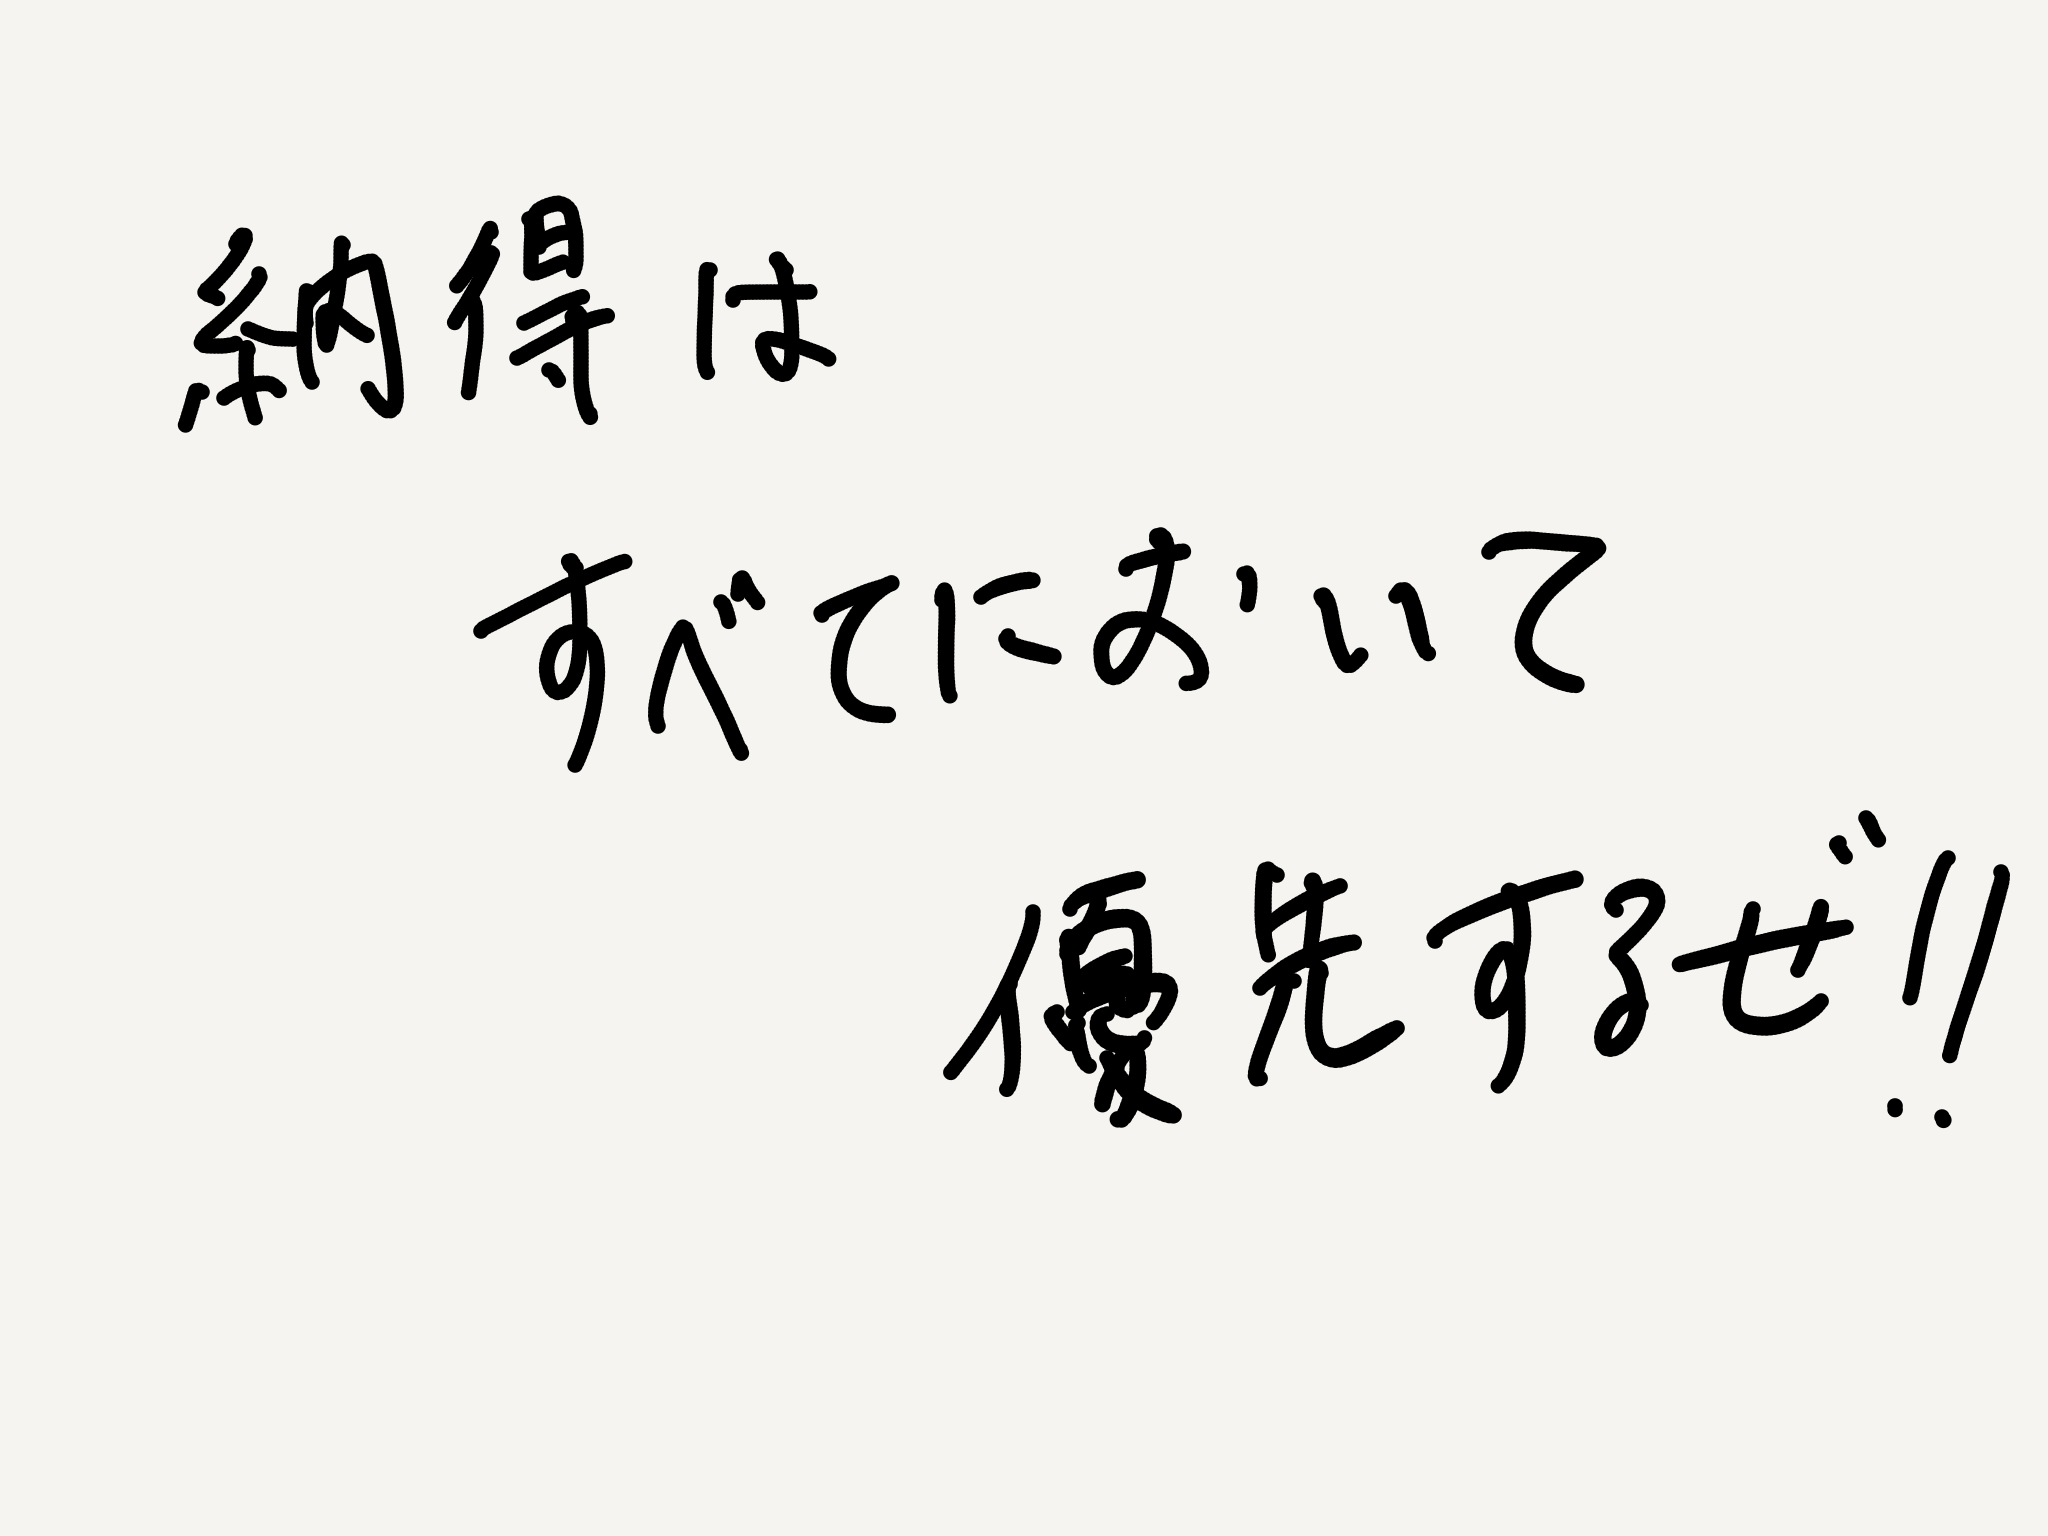 納得は
すべてにおいて
優先するぜ!!